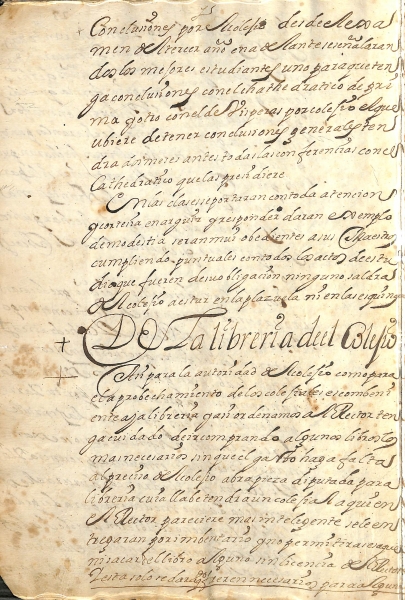 Conclusiones por el Colesio desde el exsa
men de el tercer año en a delante se señalaran
de los mejores estudiantes uno para que ten
ga conclusiones con el chathedratico de pri
ma y otro con el de Visperas por colesio el que
ubiere de tener conclusiones generales ten
dra un mes antes todas las conferencias con el
Cathedratico que las presidiere
En las clases se portaran con toda atencion
y cortesia en arguir y responder daran exemplo
de modestia seran mui obedientes a sus Maestros
cumpliendo puntuales con todos los actos de estu
dio que fueren de su obligacion ninguno saldra
de el Colesio a estar en la plazuela ni en las esquinas
De La libreria de el Colesio
Assi para la autoridad de el Colesio como para
el aprobechamiento de los colesiales es combeni
ente aya libreria y assi ordenamos a el Rector ten
ga cuidado de ir comprando algunos libros los
mas necesarios sin que el gasto haga falta
al preciso de el Colesio abra pieza diputada para
libreria cuia llabe tendra un colesial a quien
el Rector pareciere mas inteligente se le en
tregaran por imbentario y no permitira se saque
ni sacar el libro alguno sin licencia de el Rector
y esta solo se dara si fueren necesarios para algun